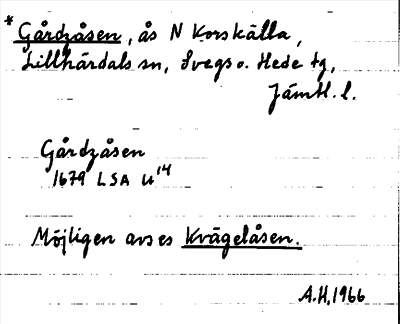 * Gårdzåsen, ås N Korskälla,
Lillhärdals sn, Svegs o. Hede tg,
Jämtl. l.
Gårdzåsen
1679 LSA U¹⁴
Möjligen avses Kvägelåsen.
A.H. 1966